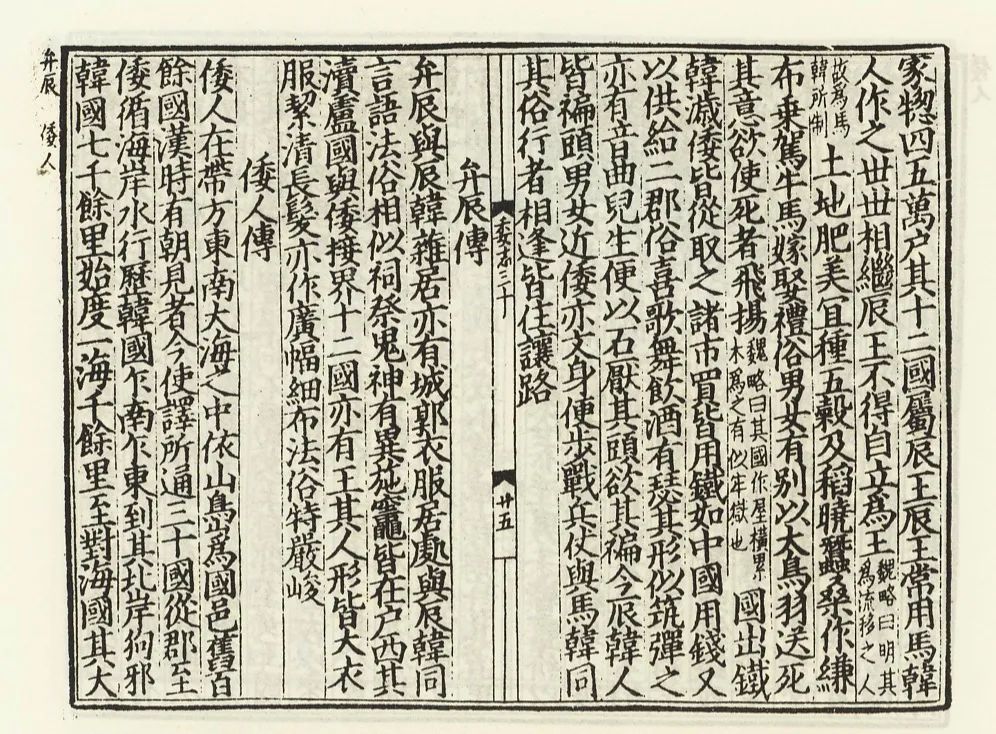 家總四五萬户其十二國屬辰王辰王常用馬韓
人作之世世相繼辰王不得自立爲王魏略曰明其爲流移之人
故爲馬韓所制土地肥美冝種五穀及稻曉蠶桑作縑
布乗駕牛馬嫁娶禮俗男女有别以大鳥羽送死
其意欲使死者飛揚魏略曰其國作屋橫累木爲之有似牢獄也國出鐵
韓濊倭皆從取之諸市買皆用鐵如中國用錢又
以供給二郡俗喜歌舞飲酒有瑟其形似筑彈之
亦有音曲兒生便以石厭其頭欲其褊今辰韓人
皆褊頭男女近倭亦文身便步戰兵仗與馬韓同
其俗行者相逢皆住讓路
弁辰傳
弁辰與辰韓雜居亦有城郭衣服居處與辰韓同
言語法俗相似祠祭鬼神有異施竈皆在户西其
瀆盧國與倭接界十二國亦有王其人形皆大衣
服絜清長髮亦作廣幅細布法俗特嚴峻
倭人傳
倭人在帶方東南大海之中依山島爲國邑舊百
餘國漢時有朝見者今使譯所通三十國從郡至
倭循海岸水行歷韓國乍南乍東到其北岸狗邪
韓國七千餘里始度一海千餘里至對海國其大
弁辰 倭人
委志三十
廿五